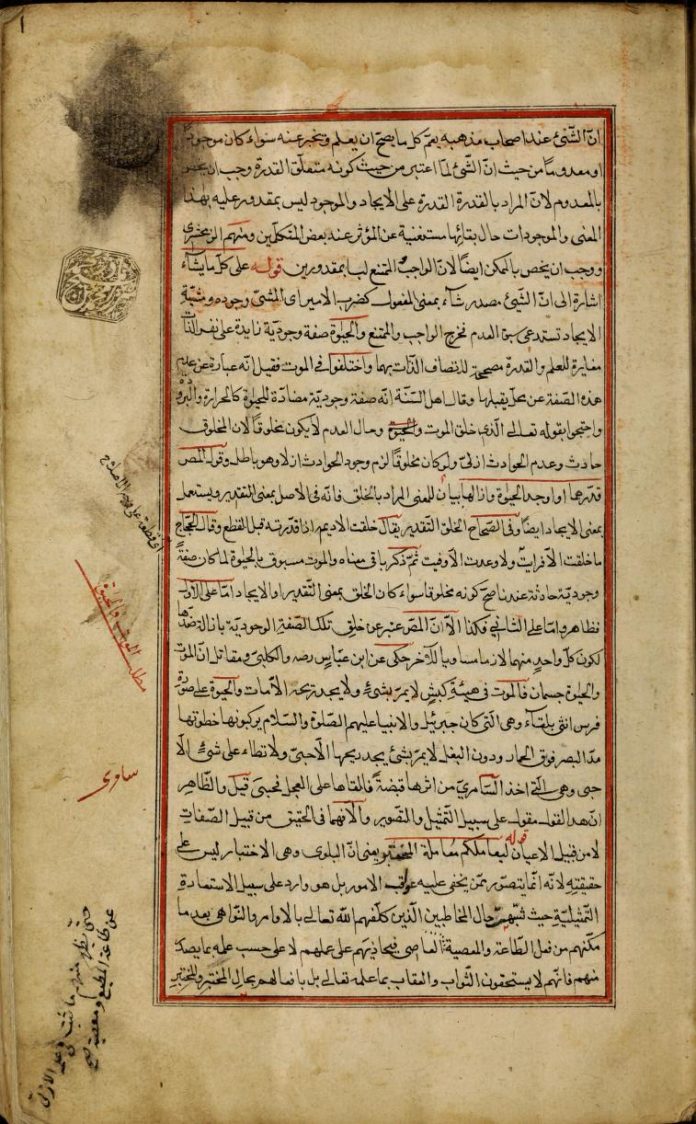 انّ الشّئ عند اصحاب مذهبه يعمّ كل ما يصحّ ان يعلم ويخبر عنه سواء كان موجودا
او معدوما من حيث انّ الشّئ لمّا اعتبر من حيث كونه متعلّق القدرة وجب ان يخص
بالمعدوم لانّ المراد بالقدرة القدرة على الايجاد والموجود ليس بمقدور عليه بهذا
المعنى والموجودات حال بقائها مستغنية عن المؤثر عند بعض المتكلّمين ومنهم الزمخشرى
ووجب ان يخص بالممكن ايضًا لانّ الواجب والممتنع ليسا بمقدورين قوله على كلّ ما يشآء
اشارة الى انّ الشّيئ مصدر شآء بمعنى المفعول كضرب الامير اى المشئ وجوده ومشيّة
الايجاد تستدعى سبق العدم فخرج الواجب والممتنع والحيٰوة صفة وجوديّة زايدة على نفس الذّات
مغايرة للعلم والقدرة مصححة لاتصاف الذّات بهما واختلفوا فى الموت فقيل انّه عبارة عن عدم
هذه الصّفة عن محلّ يقبلها وقال اهل السّنة انّه صفة وجوديّة مضادّة للحيٰوة كالحرارة والبرودة
واحتجوا بقوله تعالى الّذى خلق الموت والحيٰوة وحال العدم لا يكون مخلوقًا لان المخلوق
حادث وعدم الحوادث ازلىّ ولو كان مخلوقًا لزم وجود الحوادث ازلا وهو باطل وقول المص
قدّرهما او اوجد الحيٰوة وازالها بيان للمعنى المراد بالخلق فانّه فى الاصل بمعنى التقدير ويستعمل
بمعنى الايجاد ايضًا وفى الصّحاح الخلق التّقدير يقال خلقت الاديم اذا قدّرته قبل القطع وقال الحجّاج
ما خلقت الّا فريت ولا وعدت الّا وفيت ثمّ ذكر باقى معناه والموت مسبوق بالحيٰوة لما كان صفةً
وجوديّة حادثة عندنا صحّ كونه مخلوقا سواء كان الخلق بمعنى التّقدير او الايجاد امّا على الاول
فظاهر وامّا على الثّانى فكذا الّا انّ المصّ عبّر عن خلق تلك الصّفة الوجوديّة بازالة ضدّها
لكون كلّ واحدٍ منهما لازما مساويا للآخر حكى عن ابن عبّاس رضه والكلبىّ ومقاتل انّ الموت
والحيٰوة جسمان فالموت فى هيئة كبش لا يمرّ بشئ ولا يجد ريحه الّا مات والحيوة على صورة
فرس انثى بلقآء وهى الّتى كان جبريل والانبيا عليهم الصّلوة والسّلام يركبونها خطوتها
مدّ البصر فوق الحمار ودون البغل لا يمرّ بشئ يجد ريحها الّا حيى ولا تطاء على شئ الّا
حيى وهى الّتى اخذ السّامرىّ من اثرها قبضةً فالقاها على العجل فحيى قيل والظّاهر
انّ هذا القول مقول على سبيل التّمثيل والتّصوير والّا فهما فى الحقيق من قبيل الصّفات
لا من قبيل الاعيان قوله ليعاملكم معاملة المختبر يعنى انّ البلوى وهى الاختبار ليس على
حقيقته لانّه انّما يتصوّر ممّن يخفى عليه عواقب الامور بل هو وارد على سبيل الاستعارة
التّمثيليّة حيث شبّه حال المخاطبين الّذين كلّفهم اللّه تعالى بالاوامر والنّواهى بعد ما
مكّنهم من فعل الطّاعة والمعصية العاصى فيجازيهم على عملهم لا على حسب علمه بما يصدر
منهم فانّهم لا يستحقون الثّواب والعقاب بما علمه تعالى بل بافعالهم بحال المختبر والمختبر
اى قطعة على وجه الاصلاح
مطلب الموت والحيوة
ساوى